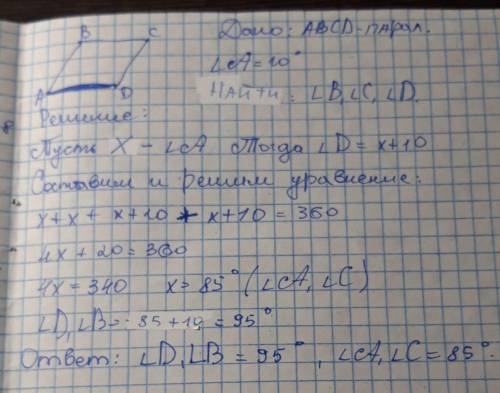 B C Дано: ABCD-парал.
∠A=10°
A D Найти: ∠B, ∠C, ∠D.
Решение:
Пусть X - ∠A Тогда ∠D = x+10
Составим и решим уравнение:
x+x+x+10+x+10=360
4x+20=360
4x=340 x=85° (∠A, ∠C)
∠D, ∠B = 85+10=95°
Ответ: ∠D, ∠B = 95°, ∠A, ∠C = 85°.